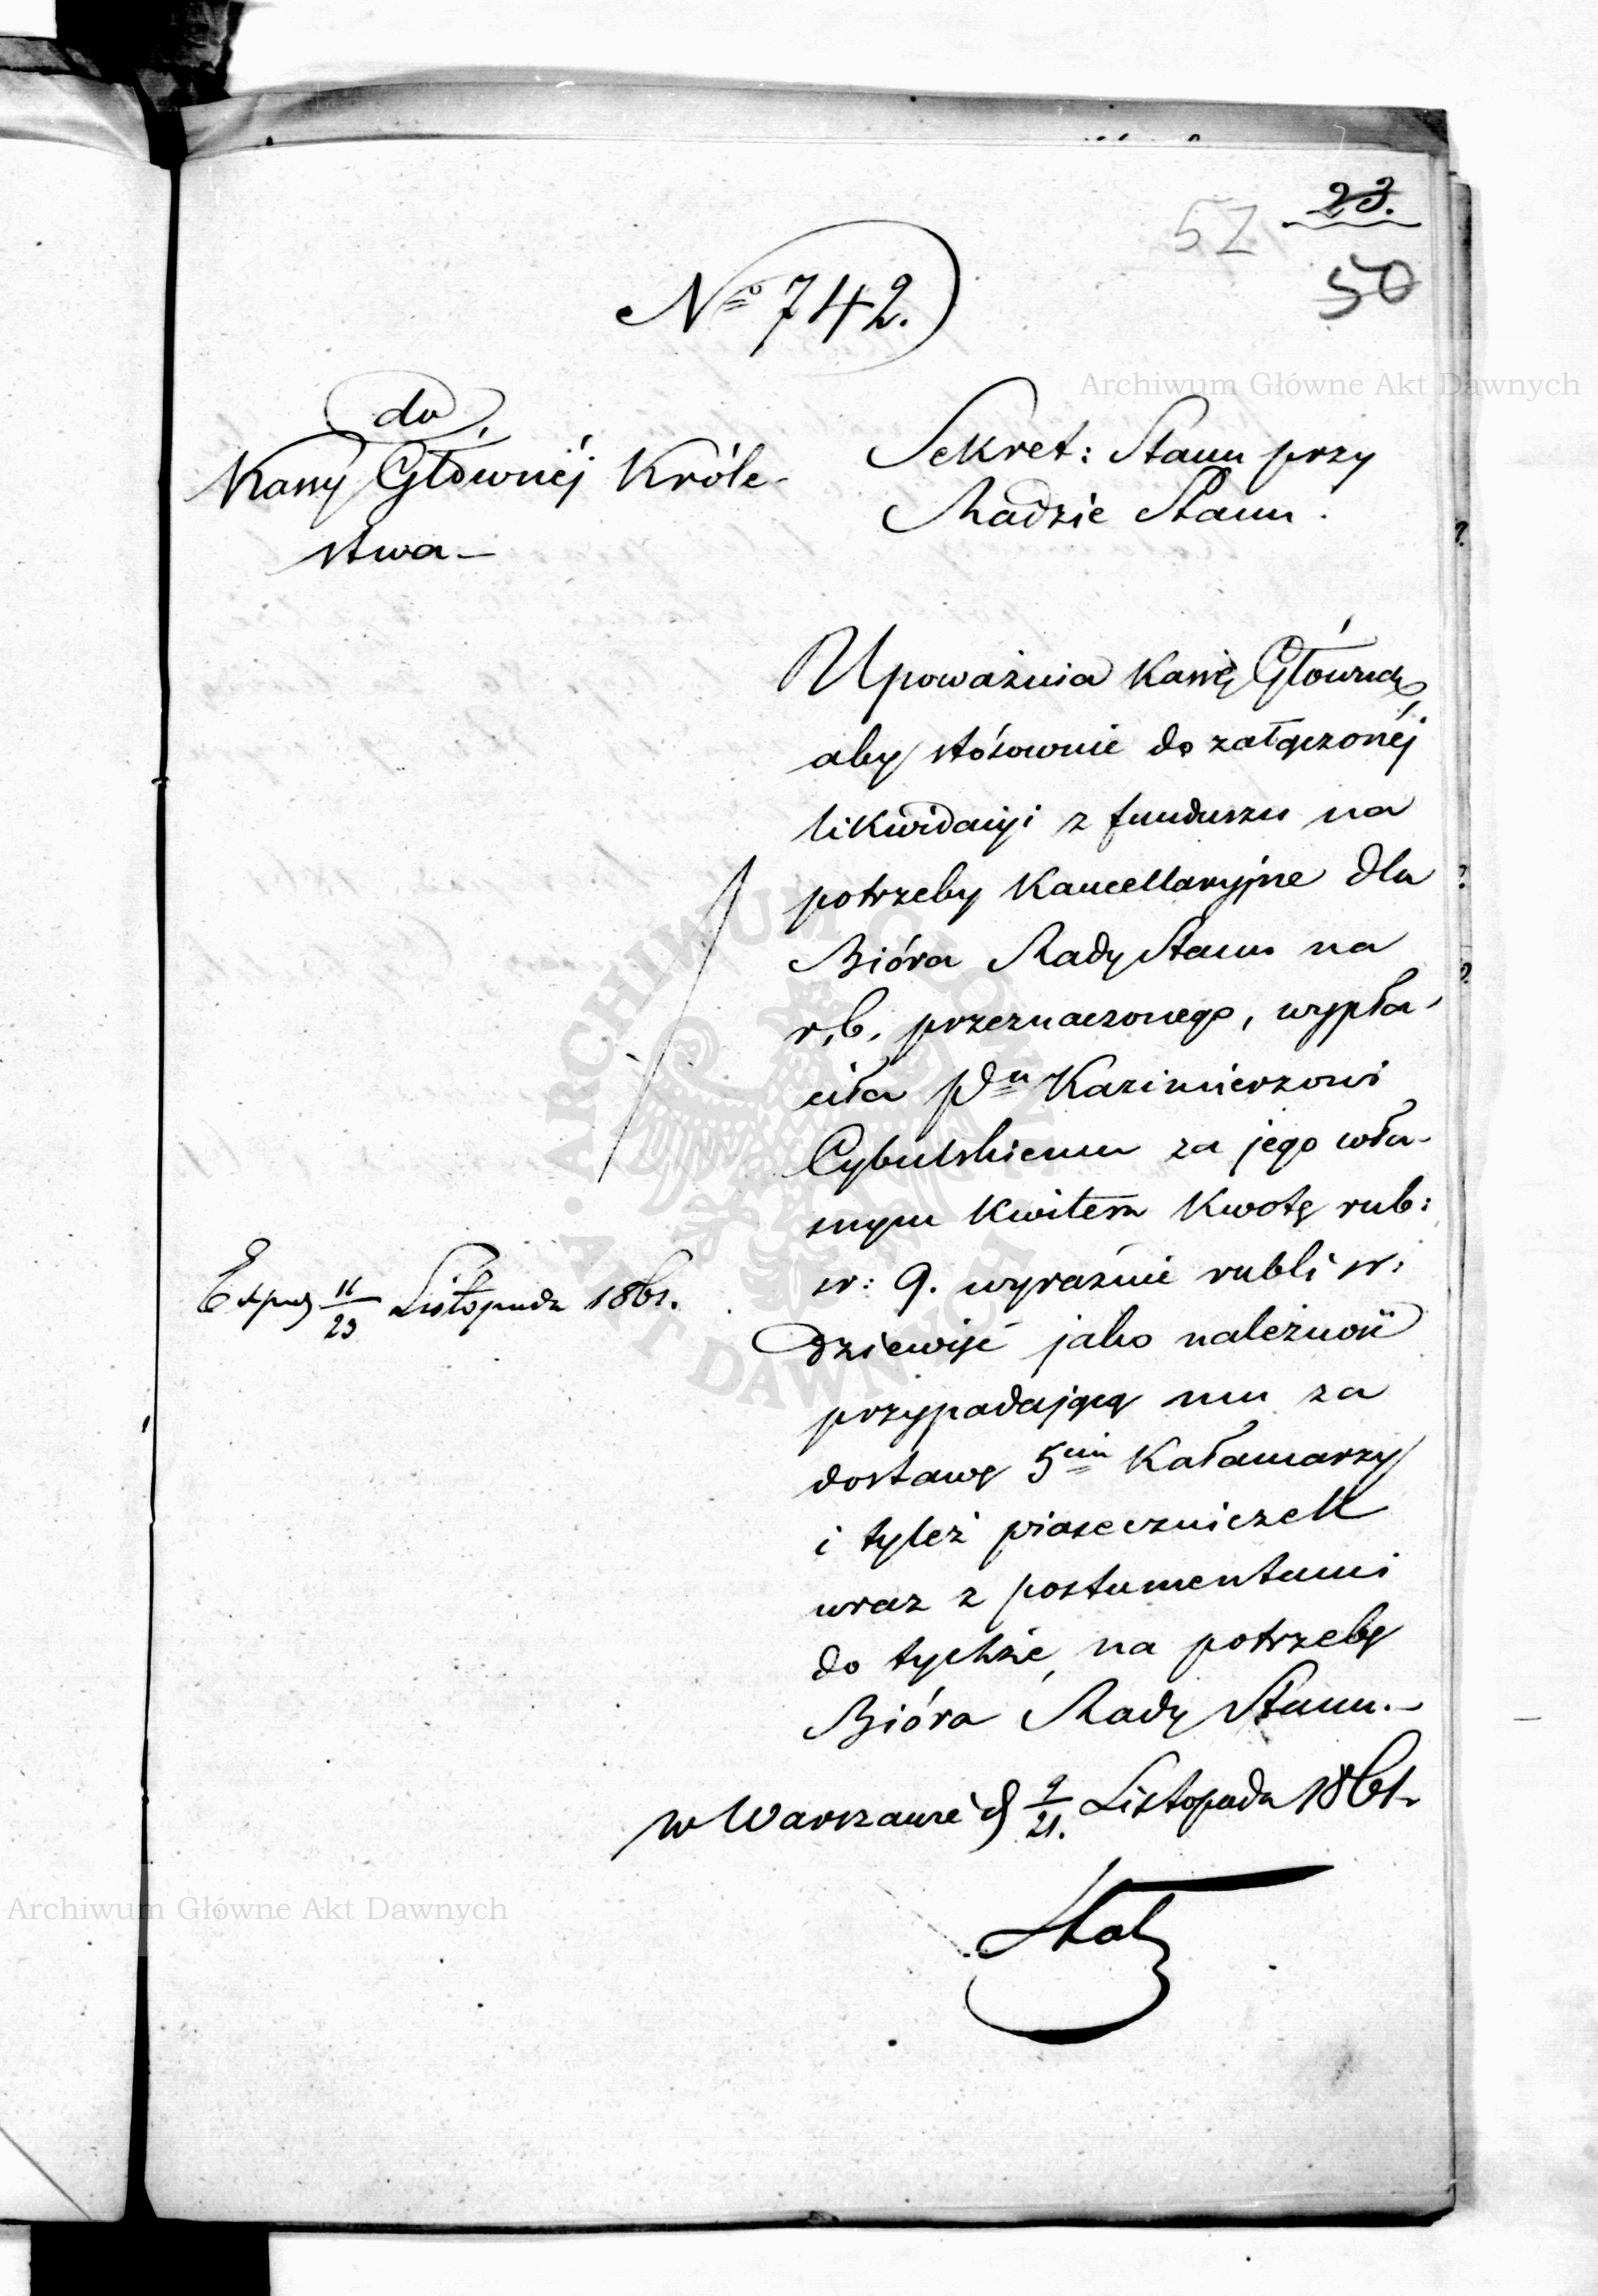 23.
52
50
Nº 742.
do
Kassy Głównéj Króle-
stwa_
Sekret: Stanu przy
Radzie Stanu.
Upoważnia Kassę Główną
aby stósownie do załączonéj
likwidacyi z funduszu na
potrzeby Kancellaryjne dla
Bióra Rady Stanu na
r. b. przeznaczonego, wypła-
ciła Pdu Kazimierzowi
Cybulskiemu za jego wła-
snym Kwitem Kwotę rub:
sr: 9. wyraźnie rubli sr:
dziewięć jako należność
przypadającą mu za
dostawę 5ciu Kałamarzy
i tyleż piaseczniczek
wraz z postumentami
do tychże, na potrzebę
Bióra Rady Stanu.-
w Warszawie d 9/21. Listopada 1861.
11/23 Listopada 1861.
Archiwum Główne Akt Dawnych
Archiwum Główne Akt Dawnych
ARCHIWUM GŁÓWNE · AKT DAWNYCH ·